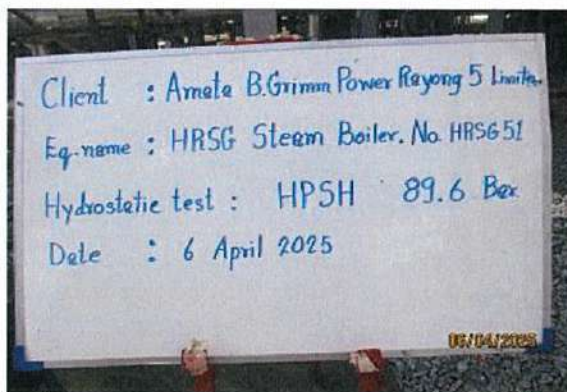 Client : Amata B.Grimm Power Rayong 5 Limited.
Eq.name : HRSG Steam Boiler. No. HRSG51
Hydrostatic test : HPSH 89.6 Bar
Date : 6 April 2025
06/04/2025